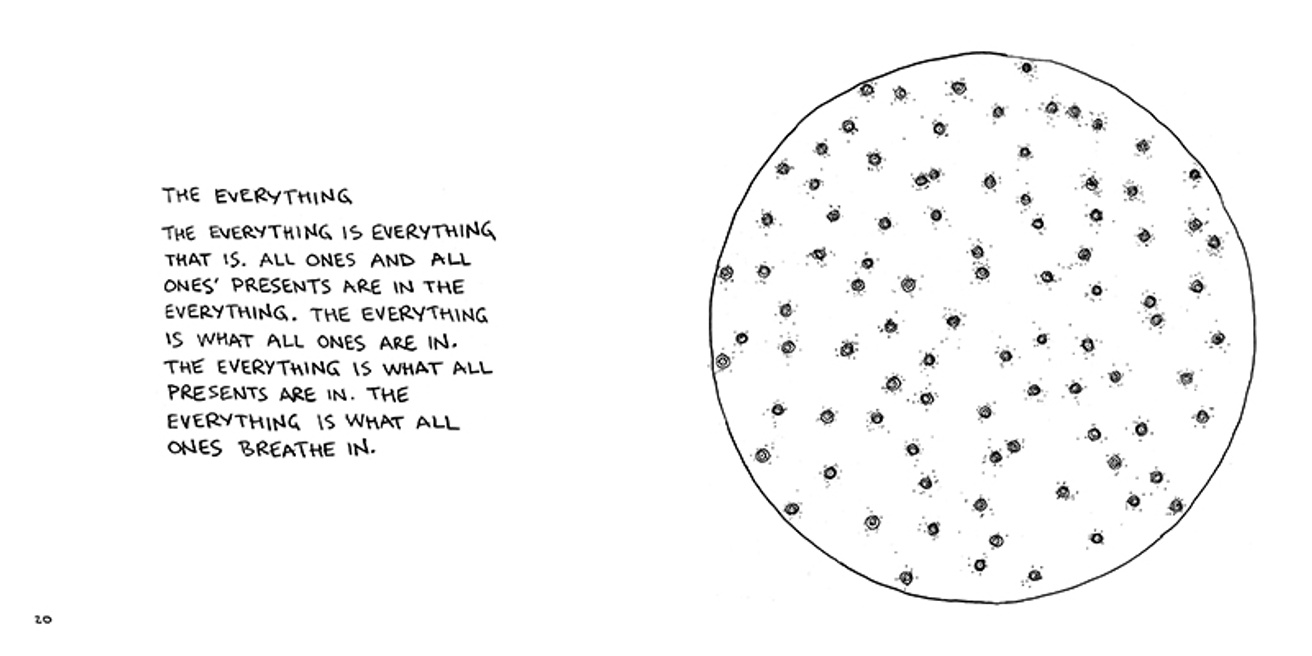 THE EVERYTHING
THE EVERYTHING IS EVERYTHING
THAT IS. ALL ONES AND ALL
ONES' PRESENTS ARE IN THE
EVERYTHING. THE EVERYTHING
IS WHAT ALL ONES ARE IN.
THE EVERYTHING IS WHAT ALL
PRESENTS ARE IN. THE
EVERYTHING IS WHAT ALL
ONES BREATHE IN.
20